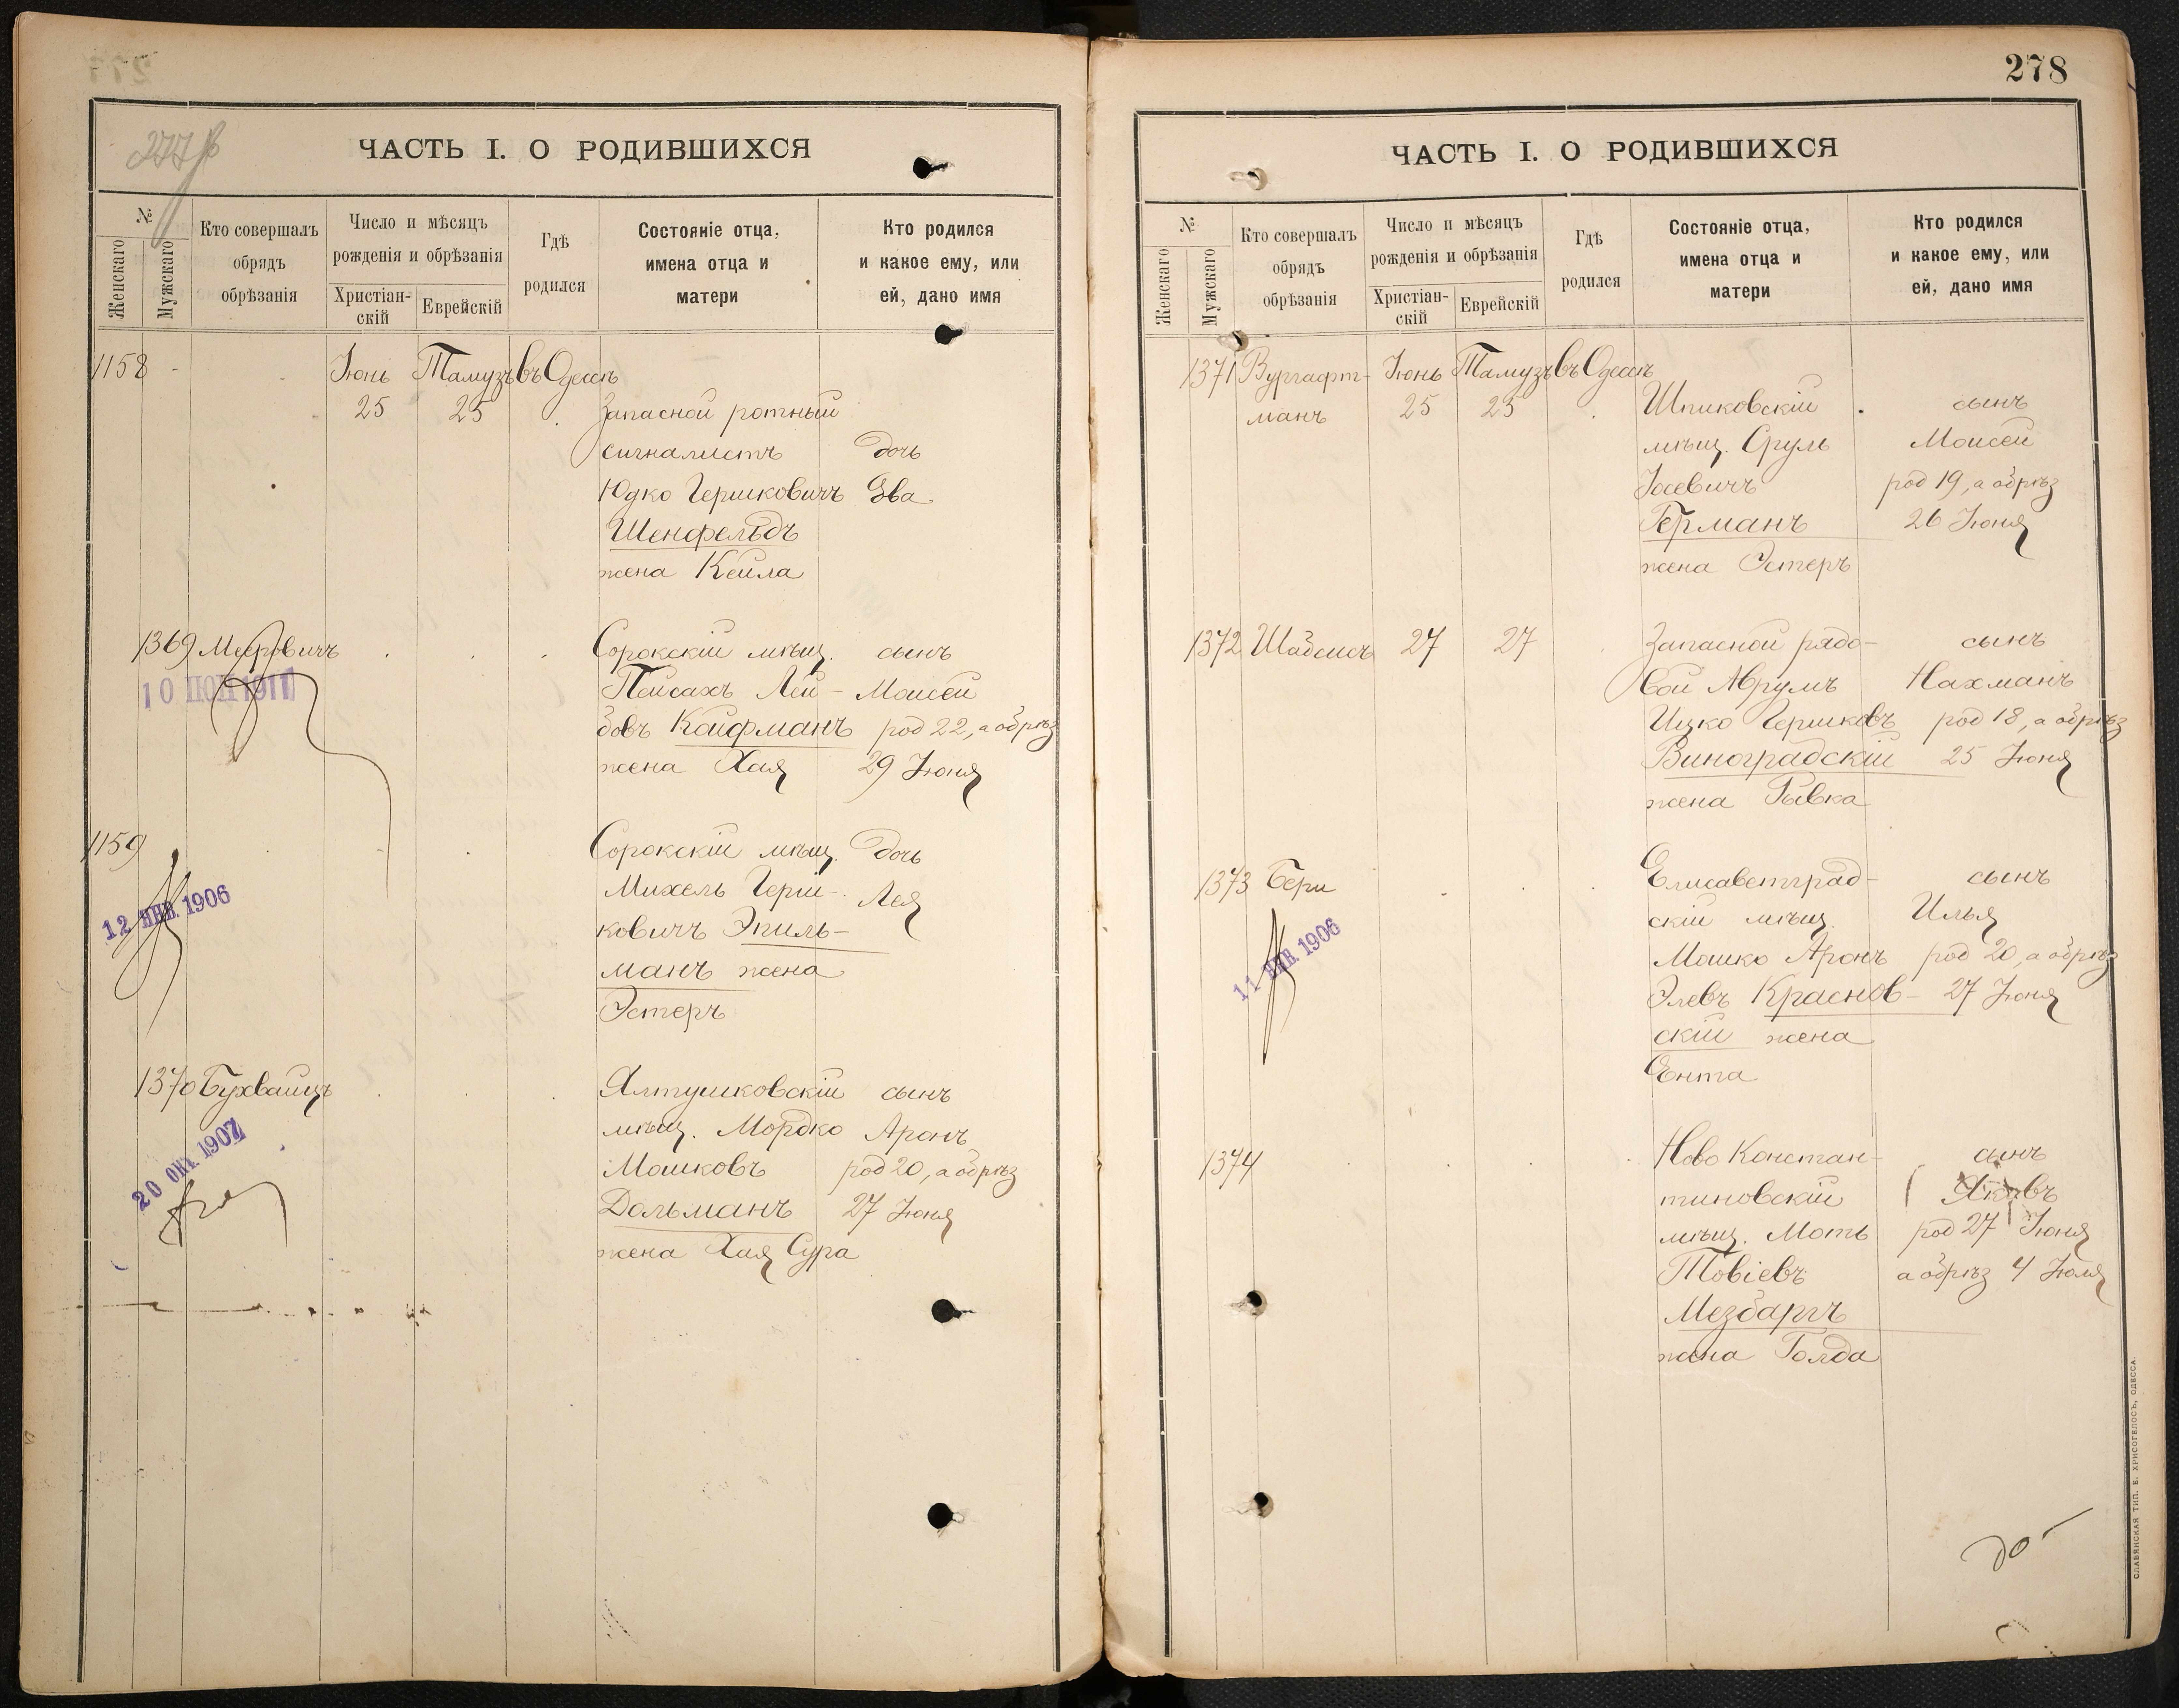 277
ЧАСТЬ I. О РОДИВШИХСЯ
№
Женскаго
Мужскаго
Кто совершалъ
обрядъ
обрѣзанія
Число и мѣсяцъ
рожденія и обрѣзанія
Христіан-
скій
Еврейскій
Гдѣ
родился
Состояніе отца,
имена отца и
матери
Кто родился
и какое ему, или
ей, дано имя
1158 - - Іюнь Тамузъ въ Одессѣ
25 25 Запасной ротный
сигналистъ дочь
Юдко Гершковичъ Эва
Шенфельдъ
жена Кейла
1369 Мееровичъ Сорокскій мѣщ. сынъ
Пейсахъ Лей- Моисей
бовъ Кайфманъ род 22, а обрѣз
жена Хая 29 Іюня
1159 Сорокскій мѣщ. дочь
12 ЯНВ. 1906
Михель Герш- Лея
ковичъ Эпиль-
манъ жена
Эстеръ
1370 Бухвайцъ Ялтушковскій сынъ
20 ОКТ 1907
мѣщ. Мордко Аронъ
Мошковъ род 20, а обрѣз
Дольманъ 27 Іюня
жена Хая Сура
278
ЧАСТЬ I. О РОДИВШИХСЯ
№
Женскаго
Мужскаго
Кто совершалъ
обрядъ
обрѣзанія
Число и мѣсяцъ
рожденія и обрѣзанія
Христіан-
скій
Еврейскій
Гдѣ
родился
Состояніе отца,
имена отца и
матери
Кто родился
и какое ему, или
ей, дано имя
1371 Вургафт- Іюнь Тамузъ въ Одессѣ
манъ 25 25 Шпиковскій сынъ
мѣщ. Сруль Моисей
Іосевичъ род 19, а обрѣз
Германъ 26 Іюня
жена Эстеръ
1372 27 27 Запасной рядо- сынъ
вой Аврумъ Нахманъ
Ицко Гершковъ род 18, а обрѣз
Виноградскій 25 Іюня
жена Рывка
1373 Бери Елисаветград- сынъ
11 ЯНВ. 1906
скій мѣщ. Илья
Мошко Аронъ род 20, а обрѣз
Элевъ Краснов- 27 Іюня
скій жена
Ента
1374 Ново Констан- сынъ
тиновскій Яковъ
мѣщ. Моть род 27 Іюня
Товіевъ а обрѣз 4 Іюля
Мезбаргъ
жена Голда
СЛАВЯНСКАЯ ТИП. Е. ХРИСОГЕЛОСЪ, ОДЕССА.